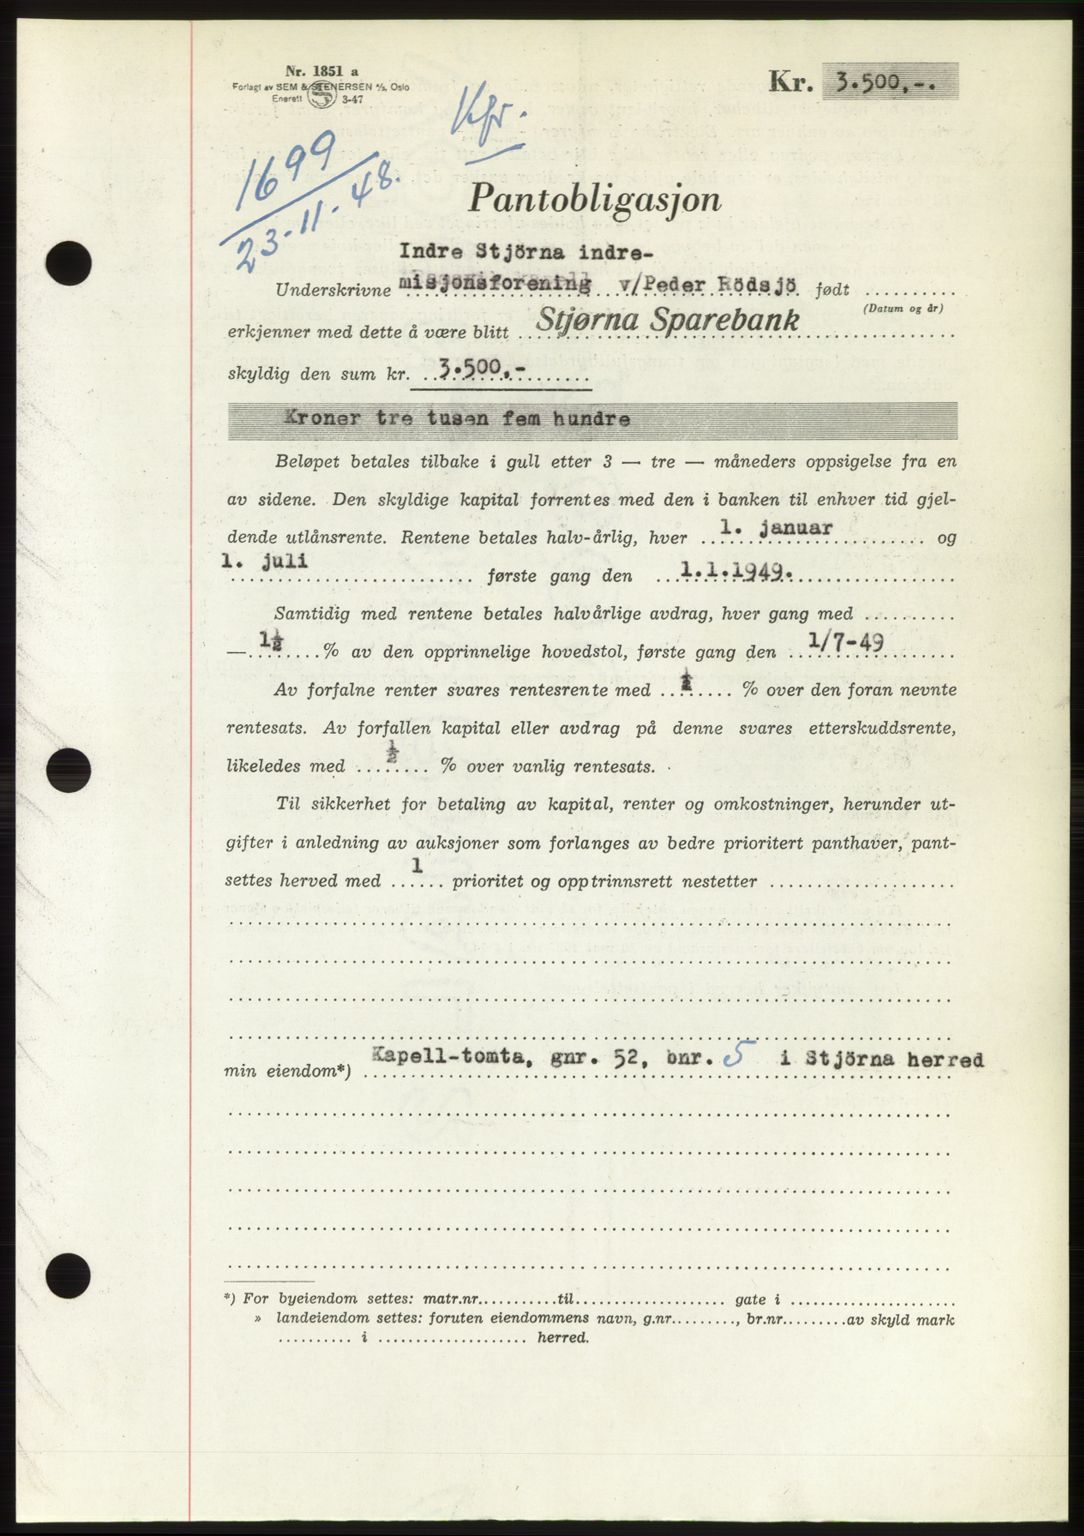 Nr. 1851 a
Forlagt av SEM & STENERSEN A/S, Oslo
Enerett 3-47
Kr. 3.500,-.
1699
23-11-48.
Pantobligasjon
Indre Stjörna indre-
Underskrivne misjonsforening v/Peder Rödsjö født ..........
(Datum og år)
erkjenner med dette å være blitt Stjørna Sparebank
skyldig den sum kr. 3.500,-
Kroner tre tusen fem hundre
Beløpet betales tilbake i gull etter 3 — tre — måneders oppsigelse fra en
av sidene. Den skyldige kapital forrentes med den i banken til enhver tid gjel-
dende utlånsrente. Rentene betales halv-årlig, hver 1. januar og
1. juli første gang den 1.1.1949.
Samtidig med rentene betales halvårlige avdrag, hver gang med ..........
— 1½ % av den opprinnelige hovedstol, første gang den 1/7-49
Av forfalne renter svares rentesrente med ½ % over den foran nevnte
rentesats. Av forfallen kapital eller avdrag på denne svares etterskuddsrente,
likeledes med ½ % over vanlig rentesats.
Til sikkerhet for betaling av kapital, renter og omkostninger, herunder ut-
gifter i anledning av auksjoner som forlanges av bedre prioritert panthaver, pant-
settes herved med 1 prioritet og opptrinnsrett nestetter ....................
min eiendom*) Kapell-tomta, gnr. 52, bnr. 5 i Stjörna herred
*) For byeiendom settes: matr.nr...........til.................... gate i ......................
» landeiendom settes: foruten eiendommens navn, g.nr........., br.nr.........av skyld mark
.......... i .................... herred.